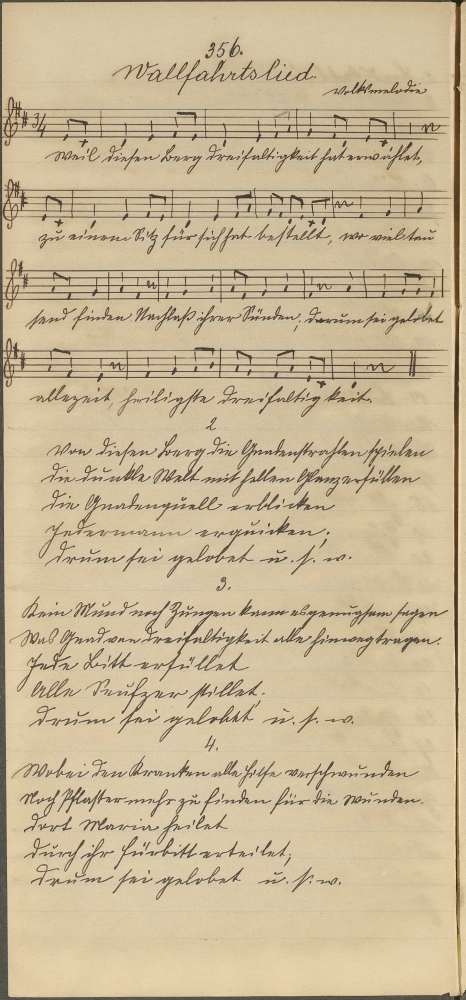 356.
Wallfahrtslied.
Volksmelodie
3/4
Weil diesen Berg Dreifaltigkeit hat erwählet,
zu einem Sitz für sich hat bestellt, wo viel tau
send finden Nachlaß ihrer Sünden, darum sei gelobet
allezeit, heiligste Dreifaltigkeit.
2
Von diesen Berg die Gnadenstrahlen spielen
die dunkle Welt mit hellen Glanz erfüllen
die Gnadenquell erblicken
Jedermann erquicken;
Drum sei gelobet u. s. w.
3.
Kein Mund noch Zungen kann es genugsam sagen
Was Gnad von Dreifaltigkeit alle hinwegtragen.
Jede Bitt erfüllet
Alle Seufzer stillet,
Drum sei gelobet u. s. w.
4.
Wobei den Kranken alle Hilfe verschwunden
Noch Pflaster mehr zu finden für die Wunden.
dort Maria heilet
durch ihr Fürbitt erteilet;
Drum sei gelobet u. s. w.